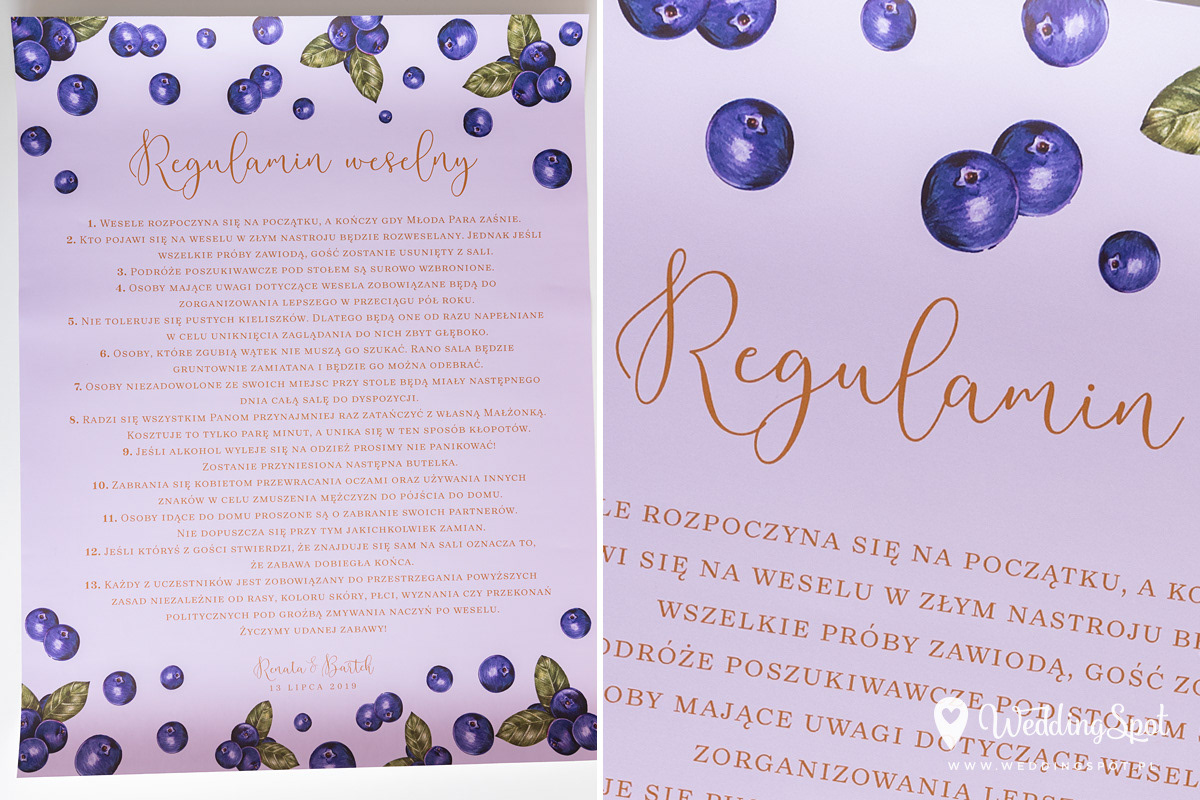 Regulamin weselny
1. Wesele rozpoczyna się na początku, a kończy gdy Młoda Para zaśnie.
2. Kto pojawi się na weselu w złym nastroju będzie rozweselany. Jednak jeśli
wszelkie próby zawiodą, gość zostanie usunięty z sali.
3. Podróże poszukiwawcze pod stołem są surowo wzbronione.
4. Osoby mające uwagi dotyczące wesela zobowiązane będą do
zorganizowania lepszego w przeciągu pół roku.
5. Nie toleruje się pustych kieliszków. Dlatego będą one od razu napełniane
w celu uniknięcia zaglądania do nich zbyt głęboko.
6. Osoby, które zgubią wątek nie muszą go szukać. Rano sala będzie
gruntownie zamiatana i będzie go można odebrać.
7. Osoby niezadowolone ze swoich miejsc przy stole będą miały następnego
dnia całą salę do dyspozycji.
8. Radzi się wszystkim Panom przynajmniej raz zatańczyć z własną Małżonką.
Kosztuje to tylko parę minut, a unika się w ten sposób kłopotów.
9. Jeśli alkohol wyleje się na odzież prosimy nie panikować!
Zostanie przyniesiona następna butelka.
10. Zabrania się kobietom przewracania oczami oraz używania innych
znaków w celu zmuszenia mężczyzn do pójścia do domu.
11. Osoby idące do domu proszone są o zabranie swoich partnerów.
Nie dopuszcza się przy tym jakichkolwiek zamian.
12. Jeśli któryś z gości stwierdzi, że znajduje się sam na sali oznacza to,
że zabawa dobiegła końca.
13. Każdy z uczestników jest zobowiązany do przestrzegania powyższych
zasad niezależnie od rasy, koloru skóry, płci, wyznania czy przekonań
politycznych pod groźbą zmywania naczyń po weselu.
Życzymy udanej zabawy!
Renata & Bartek
13 lipca 2019
Regulamin
le rozpoczyna się na początku, a ko
wi się na weselu w złym nastroju bę
wszelkie próby zawiodą, gość zo
odróże poszukiwawcze pod stołem s
oby mające uwagi dotyczące wesel
zorganizowania lepsz
je się pu
WeddingSpot
www.weddingspot.pl